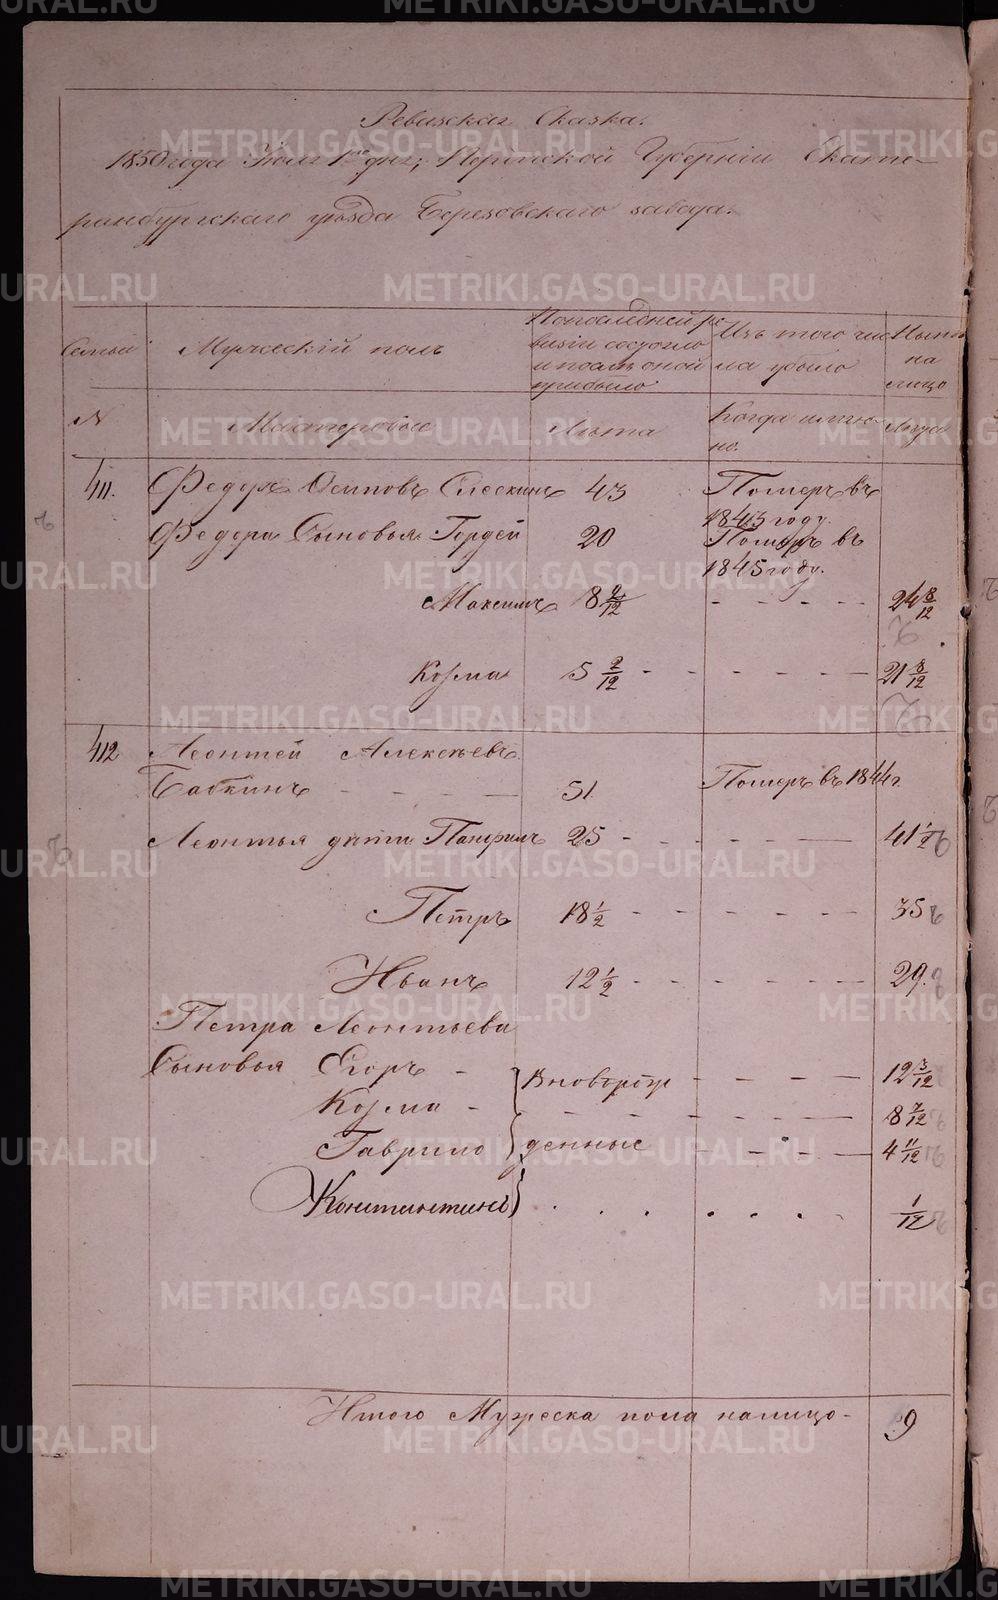 Ревизская Сказка.
1850 года Июля 1го дня, Пермской Губернiи Екате-
ринбургскаго уѣзда Березовскаго завода.
Семьи
Мужескiй полъ
По последней ре
визiи состояло
и после оной
прибыло
Изъ того чис
ла убыло
Ныне
на
лицо
N
Мастеровые
Лѣта
Когда имян-
но.
Лета
411.
Федоръ Осиповъ 43 Померъ въ
1843 году.
Федора Сыновья Гордей 20 Померъ въ
1845 году.
Максимъ 8 2/12 - - - - 24 8/12
Козма 5 2/12 - - - - - - 21 8/12
412 Леонтей Алексѣевъ
Бабкинъ - - - 51 Померъ въ 1844 г.
Леонтья дѣти Панфилъ 25 - - - - - - 41 1/2
Петръ 18 1/2 - - - - - - 35
Иванъ 12 1/2 - - - - - - 29.
Петра Леонтьева
Сыновья Егоръ - вноворож - - - - 12 3/12
Козма - - - - - - - - 8 7/12
Гаврило денные - - - - 4 11/12
Константинъ . . . . . . . 1/12
Итого Мужеска пола налицо - 9
METRIKI.GASO-URAL.RU